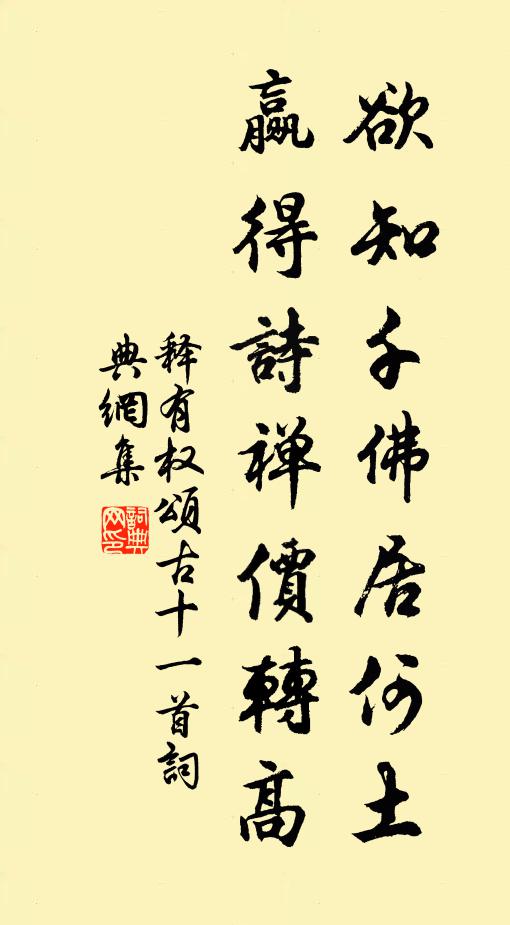 欲知千佛居何土
贏得詩禅價轉高
释有权頌古十一首詞
典網集
詞典网印